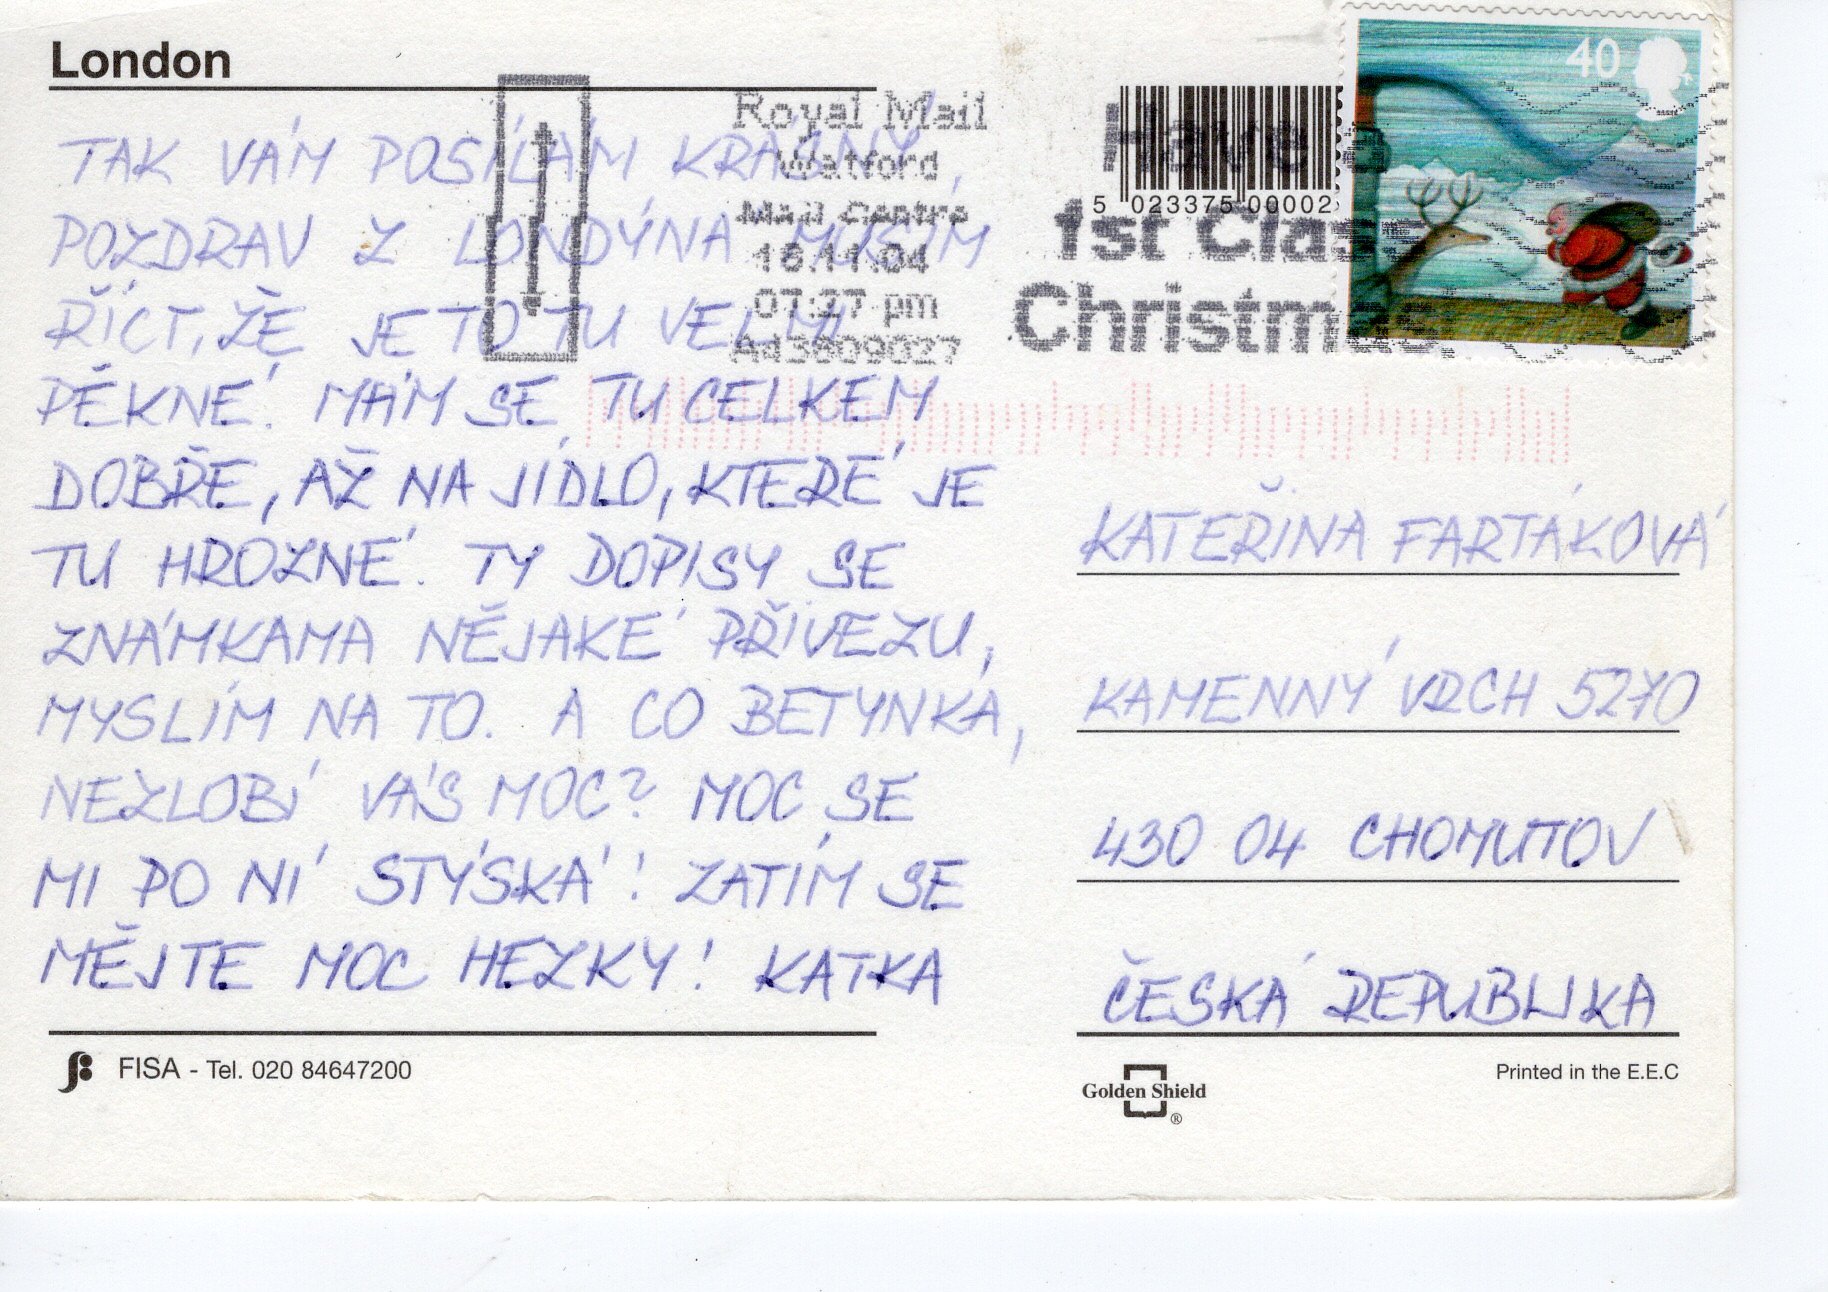 London
TAK VÁM POSÍLÁM KRÁSNÝ
POZDRAV Z LONDÝNA, MUSÍM
ŘÍCT, ŽE JE TO TU VELMI
PĚKNÉ. MÁM SE TU CELKEM
DOBŘE, AŽ NA JÍDLO, KTERÉ JE
TU HROZNÉ. TY DOPISY SE
ZNÁMKAMA NĚJAKÉ PŘIVEZU,
MYSLÍM NA TO. A CO BETYNKA,
NEZLOBÍ VÁS MOC? MOC SE
MI PO NÍ STÝSKÁ! ZATÍM SE
MĚJTE MOC HEZKY! KATKA
FISA - Tel. 020 84647200
Royal Mail
Watford
Mail Centre
16.11.04
07:27 pm
A43809027
Have a
1st Class
Christmas.
5 023375 00002
40
KATEŘINA FARTÁKOVÁ
KAMENNÝ VRCH 5270
430 04 CHOMUTOV
ČESKÁ REPUBLIKA
Golden Shield
®
Printed in the E.E.C